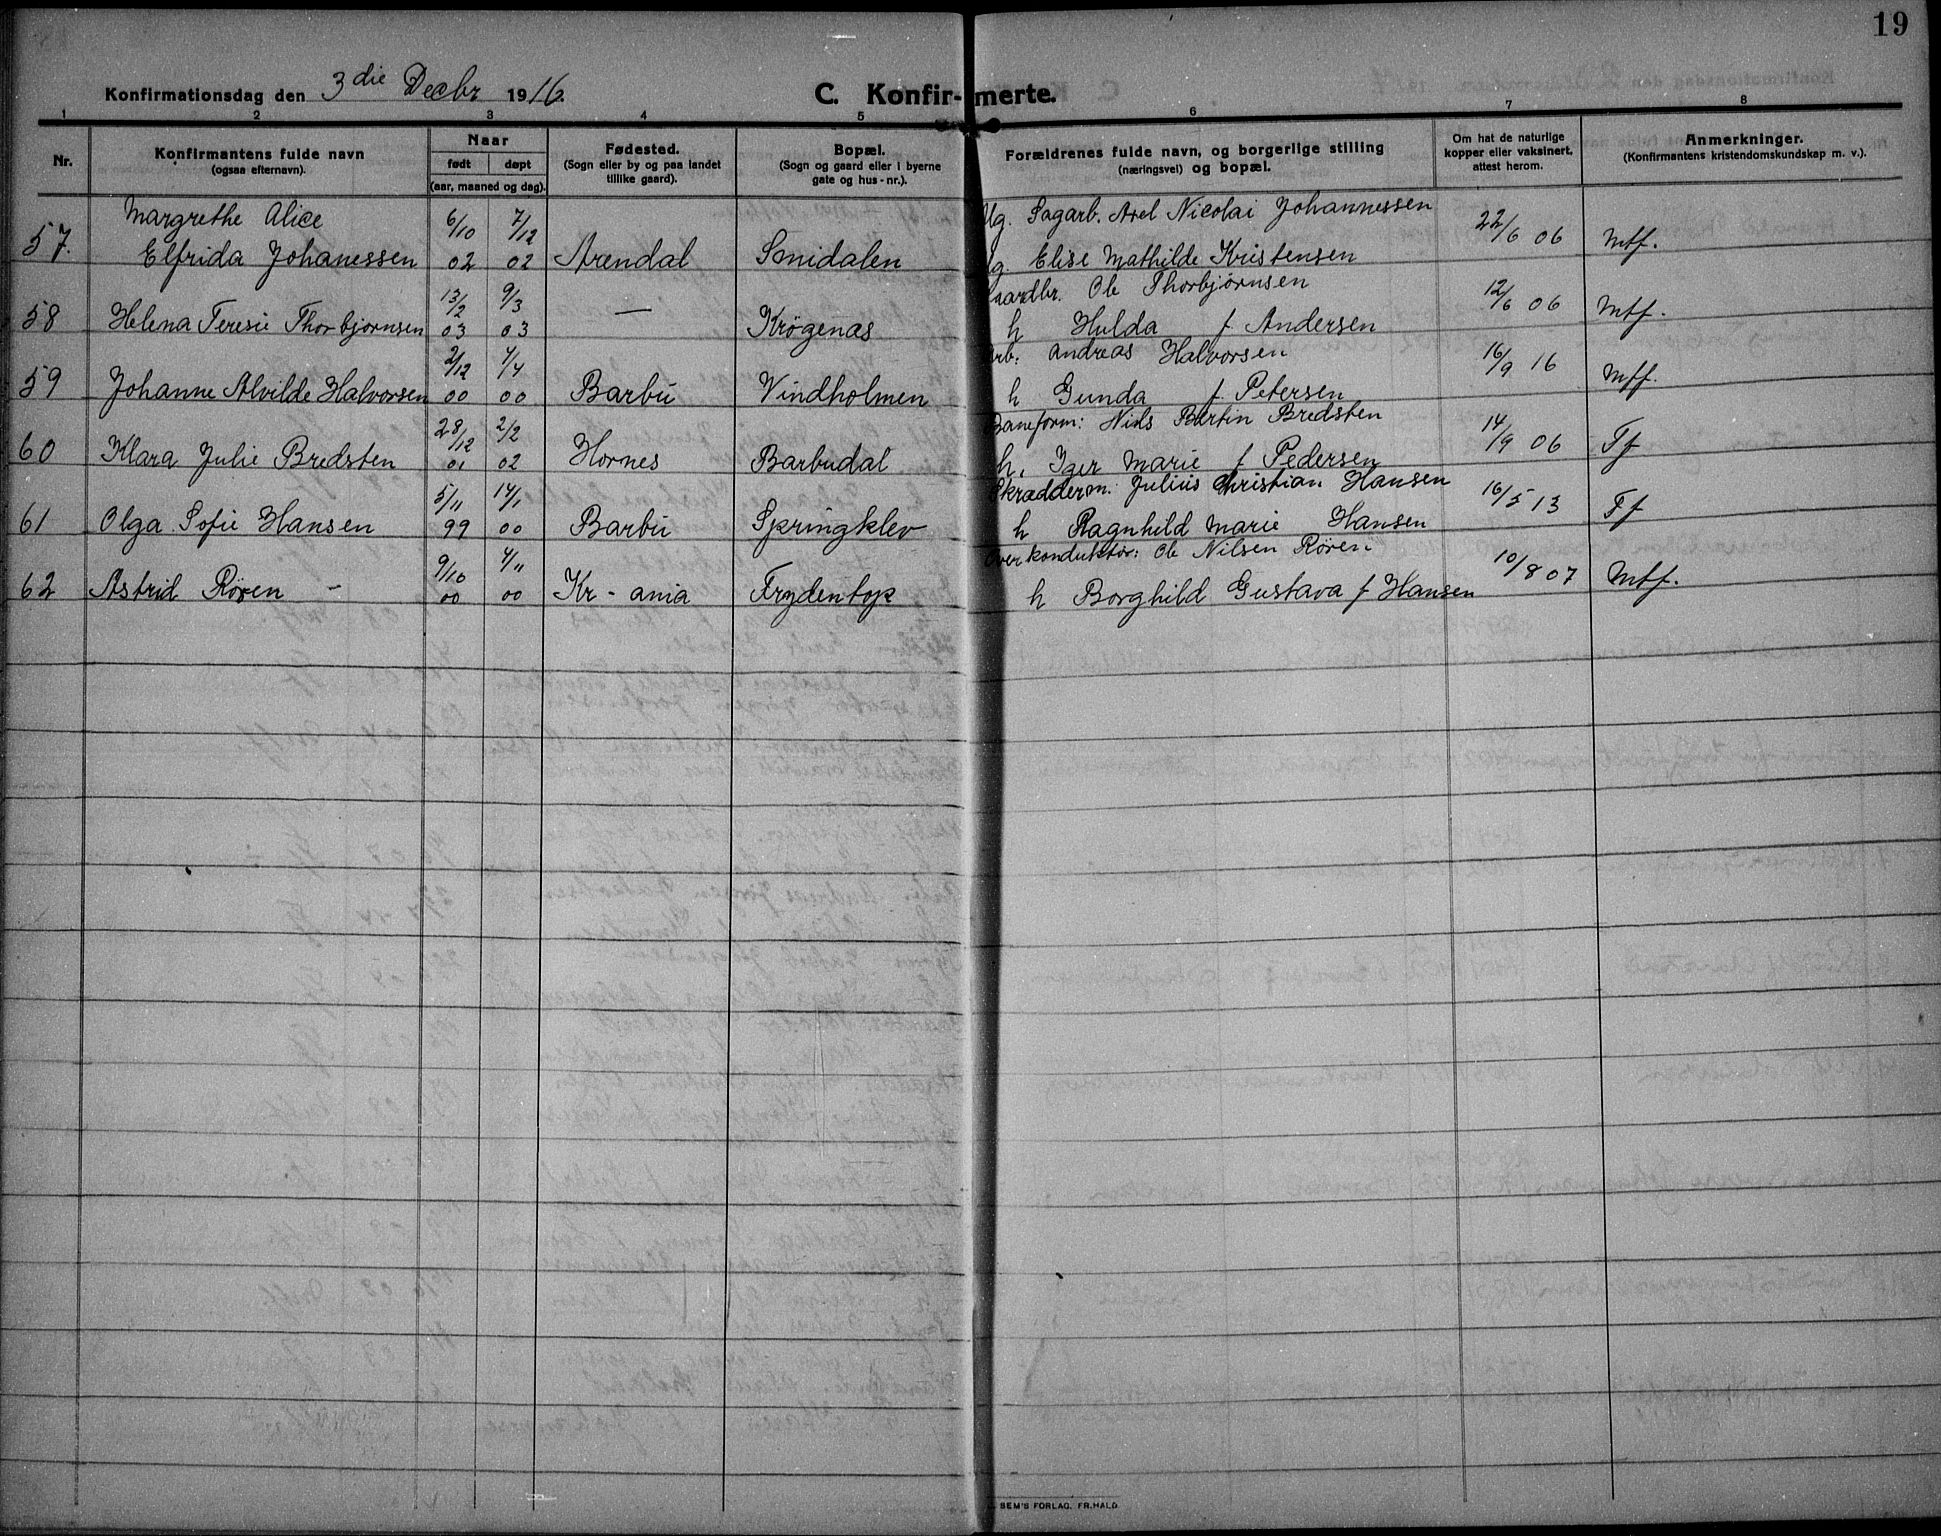 19
Konfirmationsdag den 3 die Decbr 1916. C. Konfirmerte.
1 2 3 4 5 6 7 8
Nr. Konfirmantens fulde navn (ogsaa efternavn). Naar født døpt (aar, maaned og dag). Fødested. (Sogn eller by og paa landet tillike gaard). Bopæl. (Sogn og gaard eller i byerne gate og hus-nr.). Forældrenes fulde navn, og borgerlige stilling (næringsvei) og bopæl. Om hat de naturlige kopper eller vaksinert, attest herom. Anmerkninger. (Konfirmantens kristendomskundskap m. v.).
Margrethe Alice 6/10 7/12 Ug. Sagarb. Axel Nicolai Johannessen
57. Elfrida Johanessen 02 02 Arendal Smidalen Ug. Elise Mathilde Kristensen 22/6 06 Mtf.
13/2 9/3 Gaardbr. Ole Thorbjørnsen
58 Helena Teresie Thorbjørnsen 03 03 — Krøgenæs h Hulda f Andersen 12/6 06 Mtf.
2/12 4/4 Arb. Andreas Halvorsen
59 Johanne Alvilde Halvorsen 00 00 Barbu Vindholmen h Gunda f. Petersen 16/9 16 Mtf.
28/12 2/2 Baneform: Nils Bertin Bredsten
60 Klara Julie Bredsten 01 02 Hornes Barbudal h. Marie f Pedersen 14/9 06 Tf
5/11 14/1 Skrædderm. Julius Christian Hansen
61 Olga Sofie Hansen 99 00 Barbu Springklev h Ragnhild Marie Hansen 16/5 13 Tf
9/10 4/11 Overkonduktør: Ole Nilsen Røren
62 Astrid Røren - 00 00 Kr-ania Frydentop h Borghild Gustava f Hansen 10/8 07 Mtf.
SEM'S FORLAG. FR.HALD